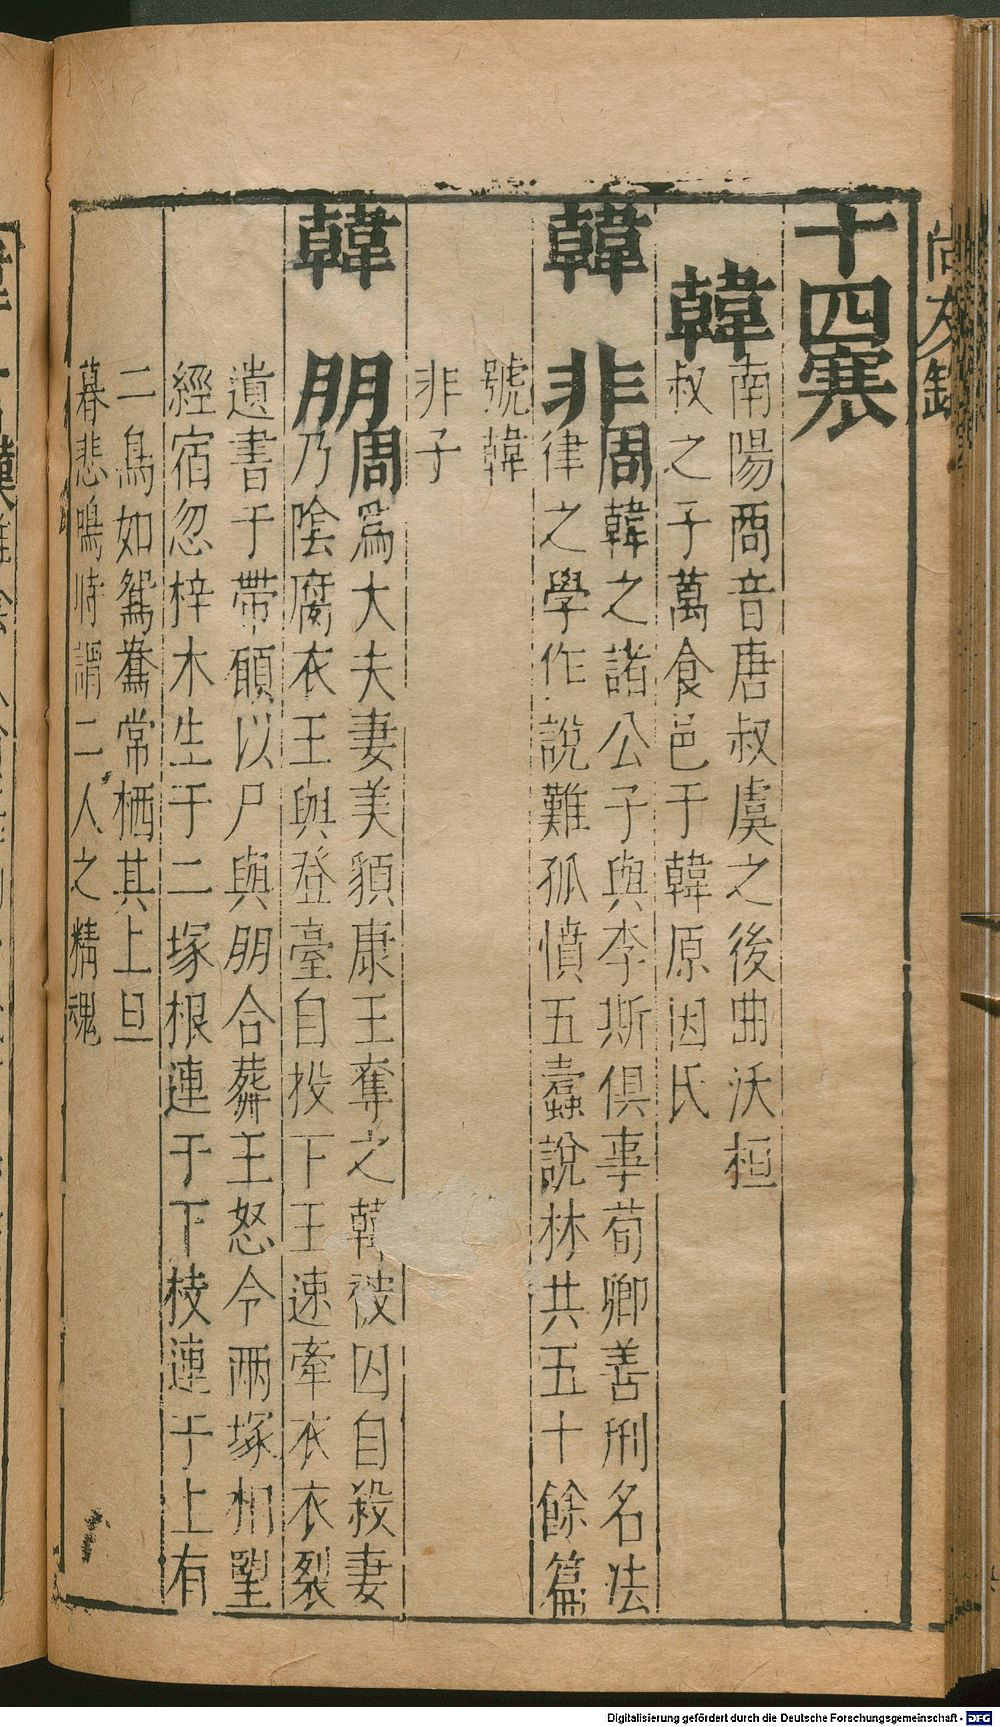 尚友錄
十四寒
韓
南陽商音唐叔虞之後曲沃桓
叔之子萬食邑于韓原因氏
韓非
周韓之諸公子與李斯俱事荀卿善刑名法
律之學作說難孤憤五蠹說林共五十餘篇
號韓
非子
韓朋
周為大夫妻美貌康王奪之韓被囚自殺妻
乃陰腐衣王與登臺自投下王速牽衣衣裂
遺書于帶願以尸與朋合葬王怒令兩塚相望
經宿忽梓木生于二塚根連于下枝連于上有
二鳥如鴛鴦常栖其上旦
暮悲鳴時謂二人之精魂
Digitalisierung gefördert durch die Deutsche Forschungsgemeinschaft - DFG